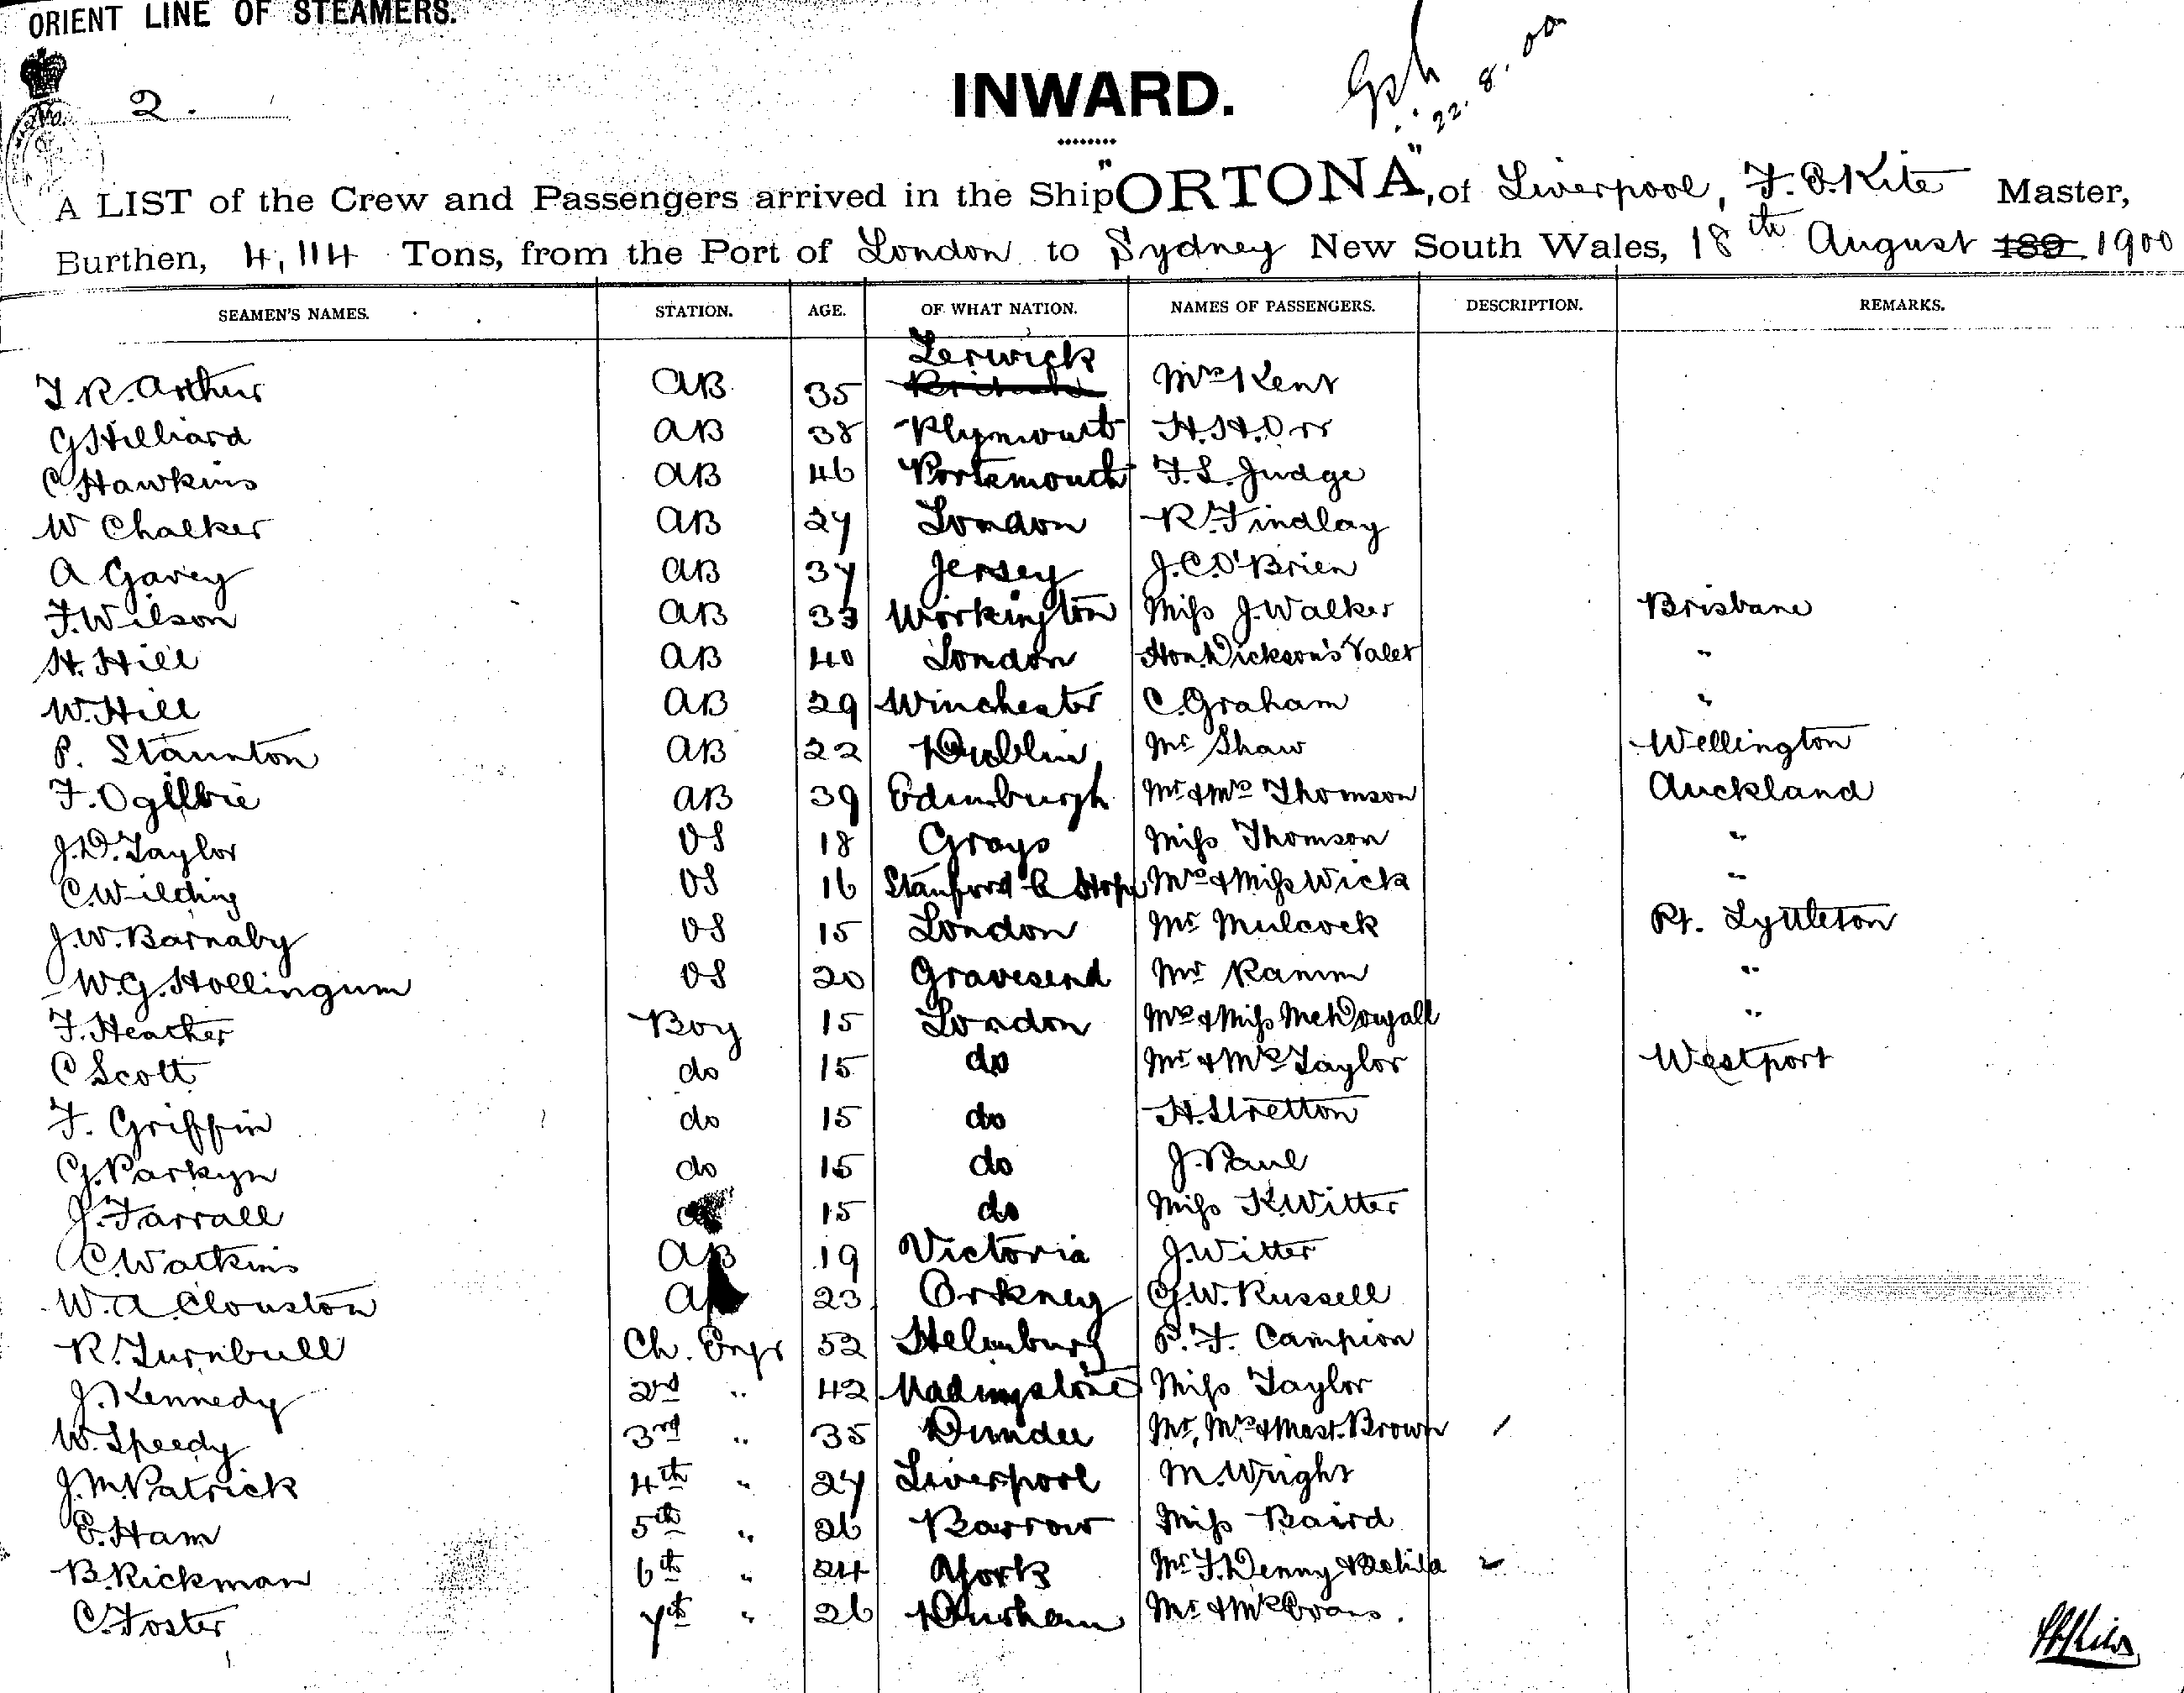 ORIENT LINE OF STEAMERS.
2.
INWARD.
22.8.00
A LIST of the Crew and Passengers arrived in the Ship "ORTONA", of Liverpool, F. O. Kite Master,
Burthen, 4,114 Tons, from the Port of London to Sydney New South Wales, 18th August 189 1900
SEAMEN'S NAMES. STATION. AGE. OF WHAT NATION. NAMES OF PASSENGERS. DESCRIPTION. REMARKS.
T R. Arthur AB 35 Lerwick Mrs Kent
G Hilliard AB 38 Plymouth H. H. Orr
C Hawkins AB 46 Portsmouth F. L. Judge
W Chalker AB 27 London R. Findlay
A Gavey AB 37 Jersey J. C. O'Brien
F. Wilson AB 33 Workington Miss J. Walker Brisbane
H. Hill AB 40 London Hon. Dickson's Valet "
W. Hill AB 29 Winchester C. Graham "
P. Staunton AB 22 Dublin Mr Shaw Wellington
F. Ogilbie AB 39 Edinburgh Mr & Mrs Thomson Auckland
J. D. Taylor OS 18 Grays Miss Thomson "
C. Wilding OS 16 Stanford le Hope Mrs & Miss Wick "
J. W. Barnaby OS 15 London Mr Mulcock Pt. Lyttleton
W. G. Hollingum OS 20 Gravesend Mr Ramm "
F. Heather Boy 15 London Mrs & Miss McDougall "
C Scott do 15 do Mr & Mrs Taylor Westport
F. Griffin do 15 do H. Stretton
G. Parkyn do 15 do J. Paul
J. Farrall do 15 do Miss K. Witter
C. Watkins AB 19 Victoria J. Witter
W. A. Clouston AB 23 Orkney G. W. Russell
R. Turnbull Ch. Engr 52 Helensburg P. F. Campion
J. Kennedy 2nd " 42 Miss Taylor
W. Speedy 3rd " 35 Dundee Mr, Mrs & Mast. Brown
J. M. Patrick 4th " 27 Liverpool M. Wright
E. Ham 5th " 26 Barrow Miss Baird
B. Rickman 6th " 24 York Mr F. Denny &
C. Foster 7th " 26 Durham Mr & Mrs Evans.